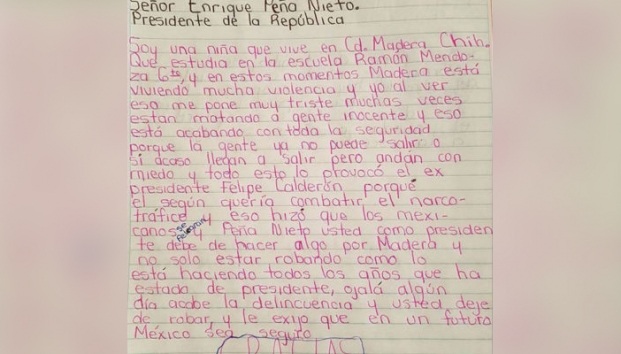 Señor Enrique Peña Nieto.
Presidente de la República
Soy una niña que vive en Cd. Madera Chih.
Que estudia en la escuela Ramón Mendo-
za 6to, y en estos momentos Madera está
viviendo mucha violencia y yo al ver
eso me pone muy triste muchas veces
estan matando a gente inocente y eso
está acabando con toda la seguridad
porque la gente ya no puede salir o
si acaso llegan a salir pero andán con
miedo y todo esto lo provocó el ex
presidente Felipe Calderón porque
el según quería combatir el narco-
tráfico y eso hizó que los mexi-
canos se y Peña Nieto usted como presiden
te debe de hacer algo por Madera y
no solo estar robando como lo
está haciendo todos los años que ha
estado de presidente, ojalá algún
día acabe la delincuencia y usted deje
de robar, y le exijo que en un futuro
México sea seguro